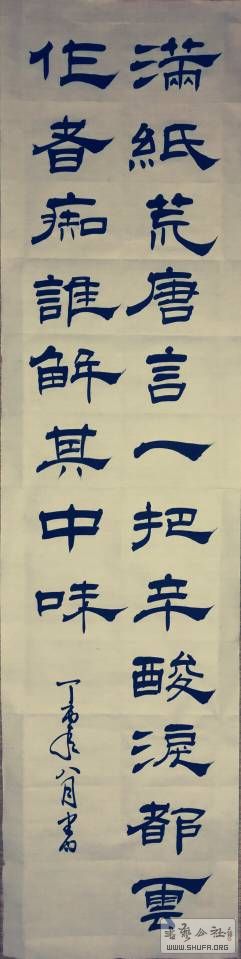 滿紙荒唐言一把辛酸淚都雲
作者痴誰解其中味
丁亥年八月書
书艺公社
WWW.SHUFA.ORG